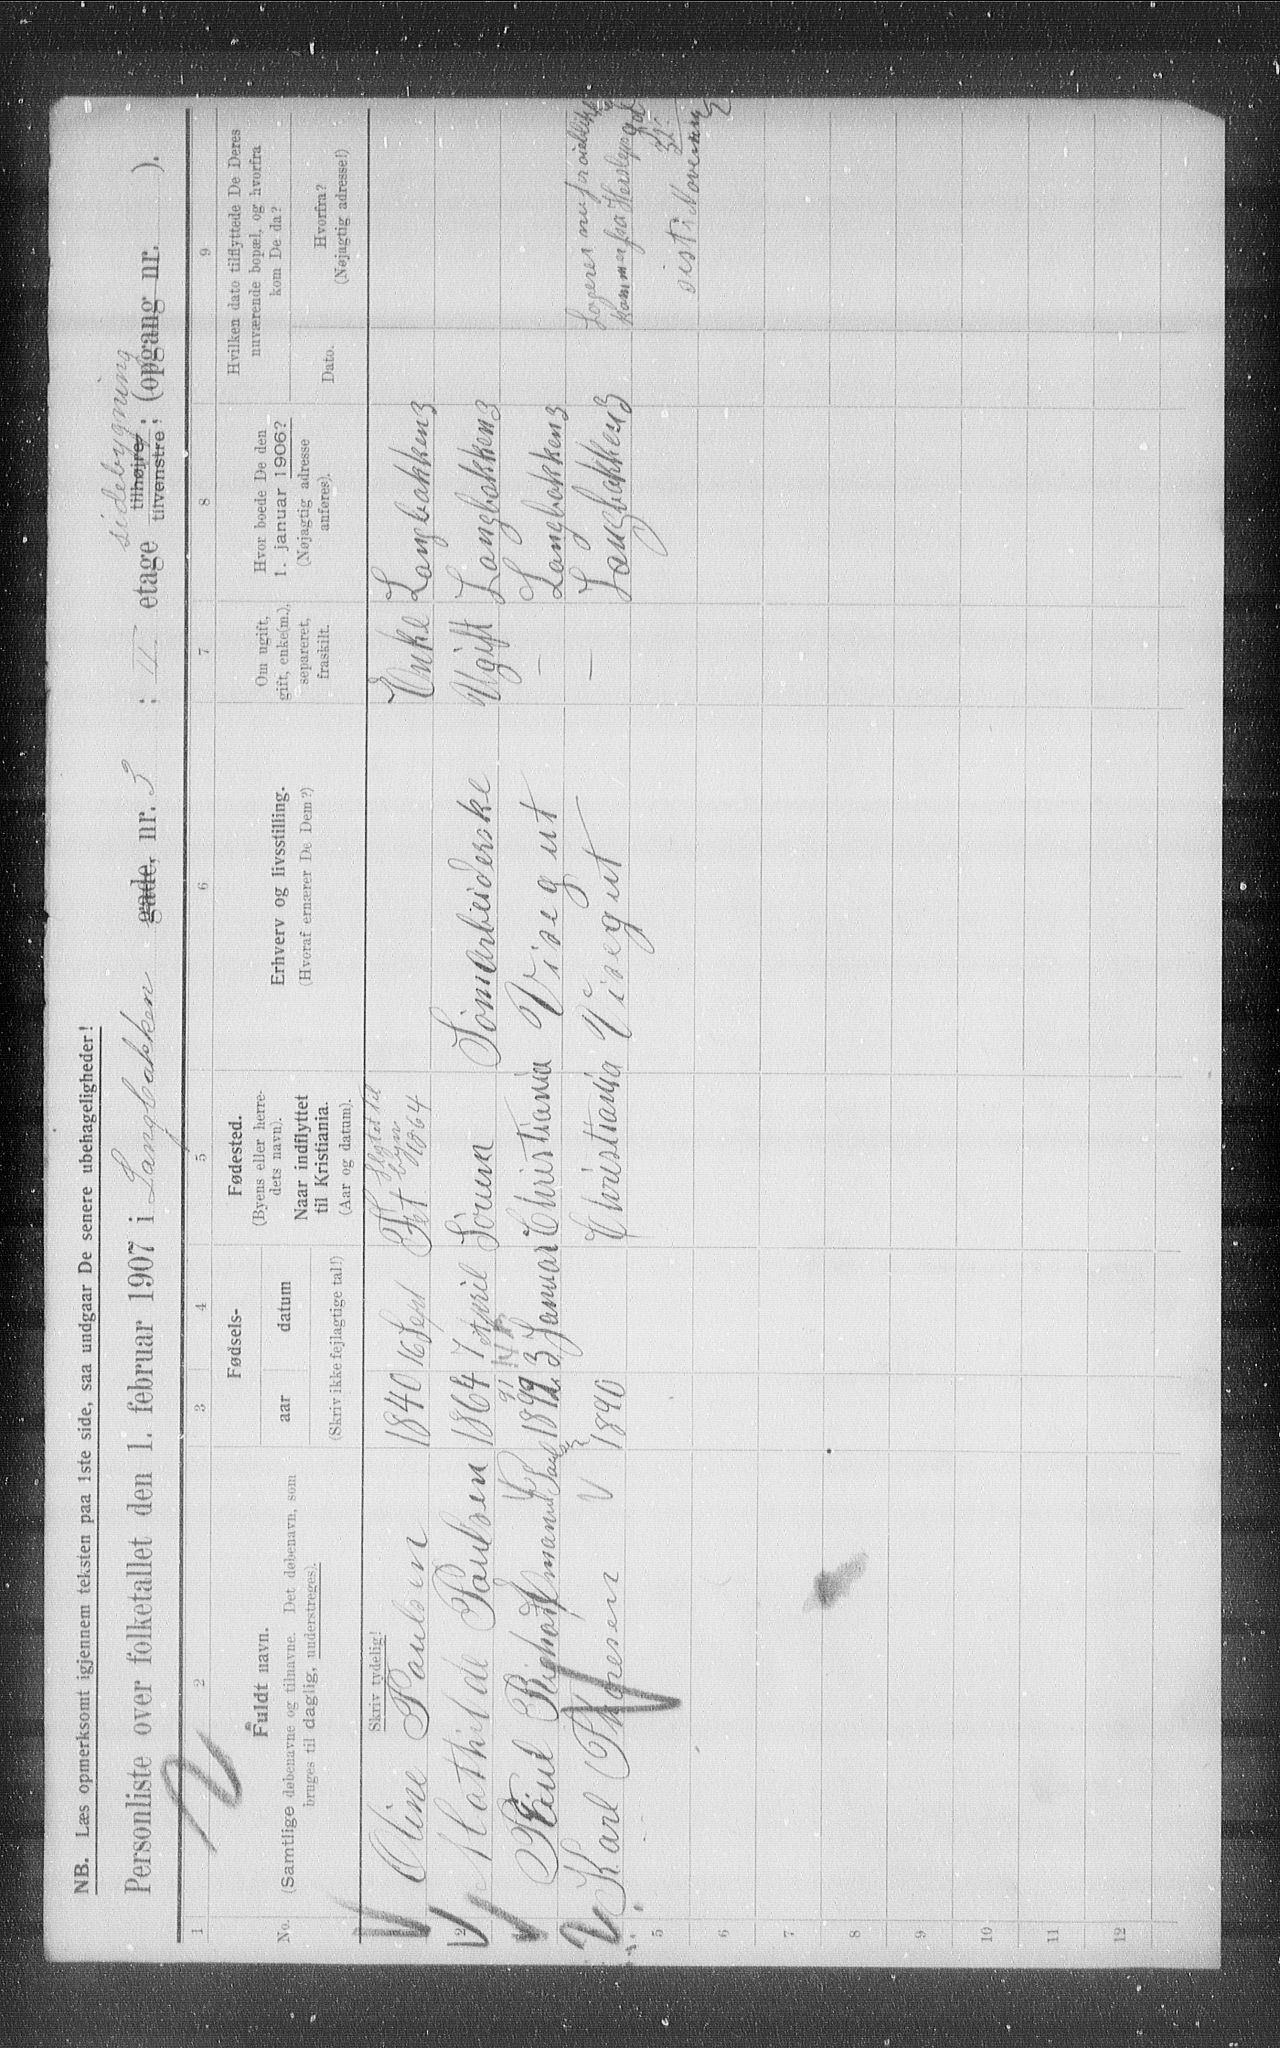 NB. Læs opmerksomt igjennem teksten paa 1ste side, saa undgaar De senere ubehageligheder!
Personliste over folketallet den 1. februar 1907 i Langbakken gade, nr. 3 ; II etage sidebygning tilhøjre, tilvenstre, ; (opgang nr. ).
1 2 3 4 5 6 7 8 9
No.
Fuldt navn.
(Samtlige døbenavne og tilnavne. Det døbenavn, som
bruges til daglig, understreges).
Fødsels-
aar datum
(Skriv ikke fejlagtige tal!)
Fødested.
(Byens eller herre-
dets navn).
Naar indflyttet
til Kristiania.
(Aar og datum).
Erhverv og livsstilling.
(Hvoraf ernærer De Dem?)
Om ugift,
gift, enke(m.),
separeret,
fraskilt.
Hvor boede De den
1. januar 1906?
(Nøjagtig adresse
anføres).
Hvilken dato tilflyttede De Deres
nuværende bopæl, og hvorfra
kom De da?
Dato.
Hvorfra?
(Nøjagtig adresse!)
Skriv tydelig!
Oline Paulsen 1840 16 Sept Fet flyttet til byn 1864 Enke Langbakken 3
2 Mathilde Paulsen 1864 7 April Sørum Sømarbeiderske Ugift Langbakken 3
Paul Richard 3 Januar Christiania Visegut — Langbakken 3
Karl Thoresen 1890 Christiania Visegut — Langbakken 3
Logerer nu for
kommer fra
sist i November
5
6
7
8
9
10
11
12